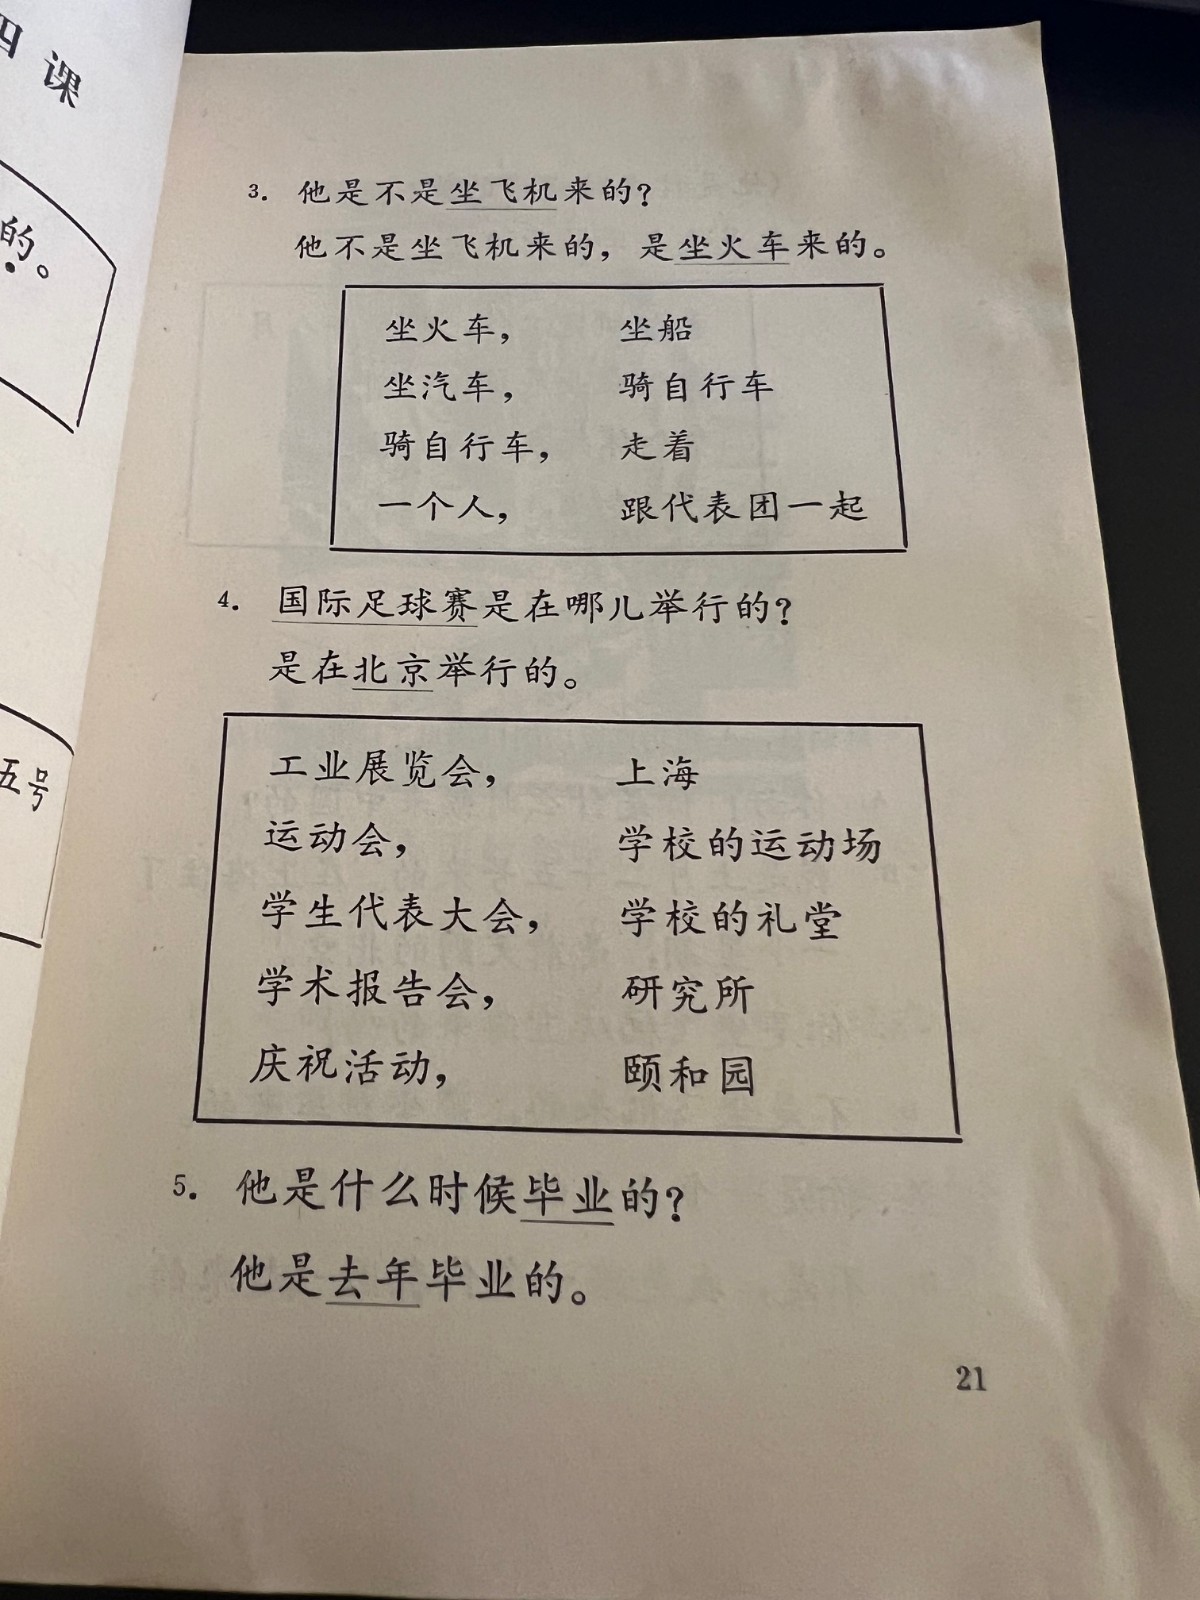 四课
的。
五号
3. 他是不是坐飞机来的?
他不是坐飞机来的，是坐火车来的。
坐火车， 坐船
坐汽车， 骑自行车
骑自行车， 走着
一个人， 跟代表团一起
4. 国际足球赛是在哪儿举行的?
是在北京举行的。
工业展览会， 上海
运动会， 学校的运动场
学生代表大会， 学校的礼堂
学术报告会， 研究所
庆祝活动， 颐和园
5. 他是什么时候毕业的?
他是去年毕业的。
21